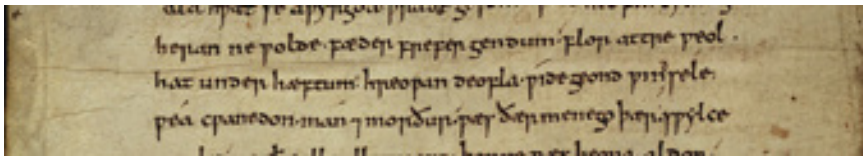 hwæt se awyrgda wraðe
heran ne wolde· fæder frefer gendum· flor attre weol·
hat under hæftum· hreopan deofla· wide geond winsele·
wea cwanedon· man ⁊ morður· wæs ðær menego þær· swylce